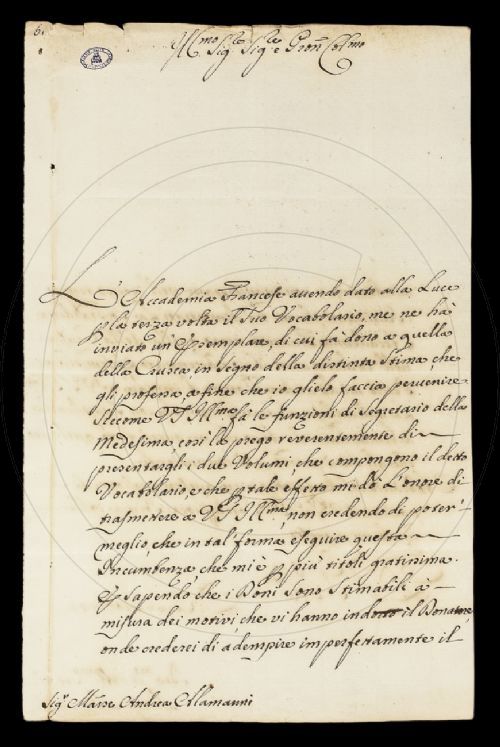 6.
Ill.mo Sig.re Sig.re e Pron Col.mo
L'Accademia Francese avendo dato alla Luce
p la terza volta il Suo Vocabolario, me ne hà
inviato un Esemplare, di cui fà dono a quella
della Crusca in segno della distinta Stima, che
gli profena, afine che io glielo faccia pervenire.
Siccome VS Ill.ma fà le funzioni di Segretario della
Medesima, così la prego reverentemente di
presentargli i due Volumi, che compongono il detto
Vocabolario, e che p tale effetto mi dò L'onore di
trasmettere a VS Ill.ma, non credendo di poter
meglio, che in tal forma eseguire questa
Incumbenza, che mi è p più titoli gratissima.
E sapendo che i Doni sono Stimabili à
misura dei motivi, che vi hanno indotto il Donatore,
onde crederei di adempire imperfettamente il
Sig.r March Andrea Alamanni